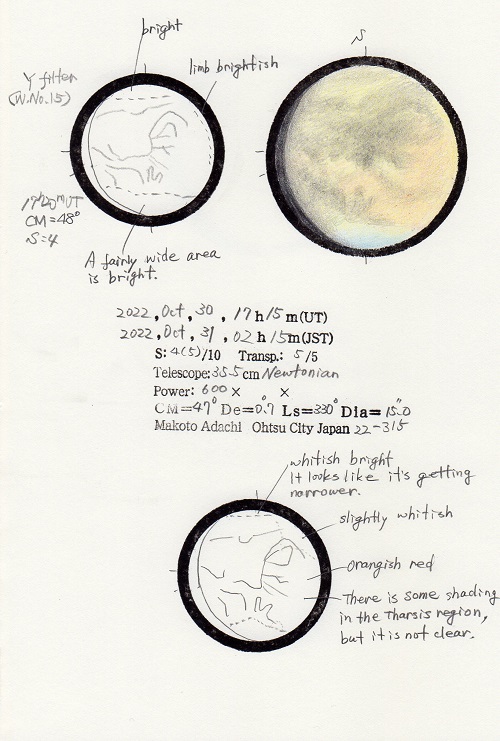 bright
limb brightish
Y filter
(W.No.15)
S
17h20mUT
CM=48°
S=4
A fairly wide area
is bright.
2022, Oct, 30, 17h15m(UT)
2022, Oct, 31, 02h15m(JST)
S: 4(5)/10 Transp.: 5/5
Telescope: 35.5cm Newtonian
Power: 600× ×
CM=47° De=0.°7 Ls=330° Dia=15."0
Makoto Adachi Ohtsu City Japan 22-315
whitish bright
It looks like it's getting
narrower.
slightly whitish
orangish red
There is some shading
in the Tharsis region,
but it is not clear.